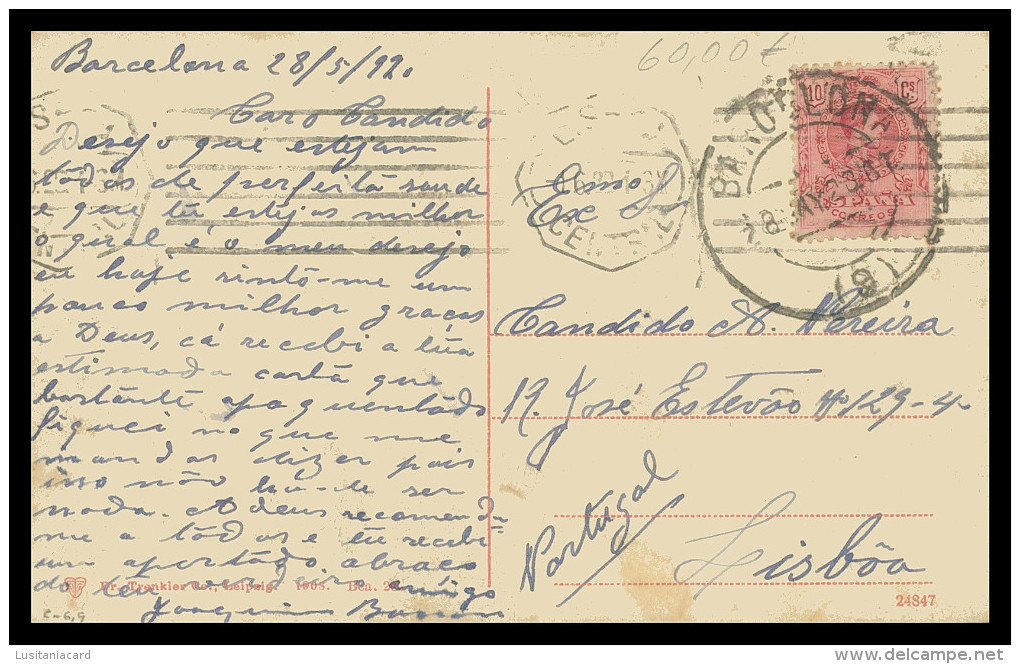 Barcelona 28/5/12.
60,00 €
Caro Candido
Desejo que estejam
todos de perfeita saude
e que tu estejas milhor
o geral é o meu desejo
eu hoje sinto-me um
pouco milhor graças
a Deus, cá recebi a tua
estimada carta que
bastante apoquentado
fiquei no que me
mandas dizer pois
isso não ha-de ser
nada. Adeus recomenda
me a todos e tu recebe
um apertado abraço
do teu amigo
Joaquim
10 Cs
CORREOS
BARCELONA
(9)
Exmo
Ex Sr
Candido A. Pereira
R. José Estevão nº 129-4º
Portugal
Lisbôa
Dr. Trenkler Co., Leipzig. 1905. Den. 24847
c-6,9
Lusitaniacard